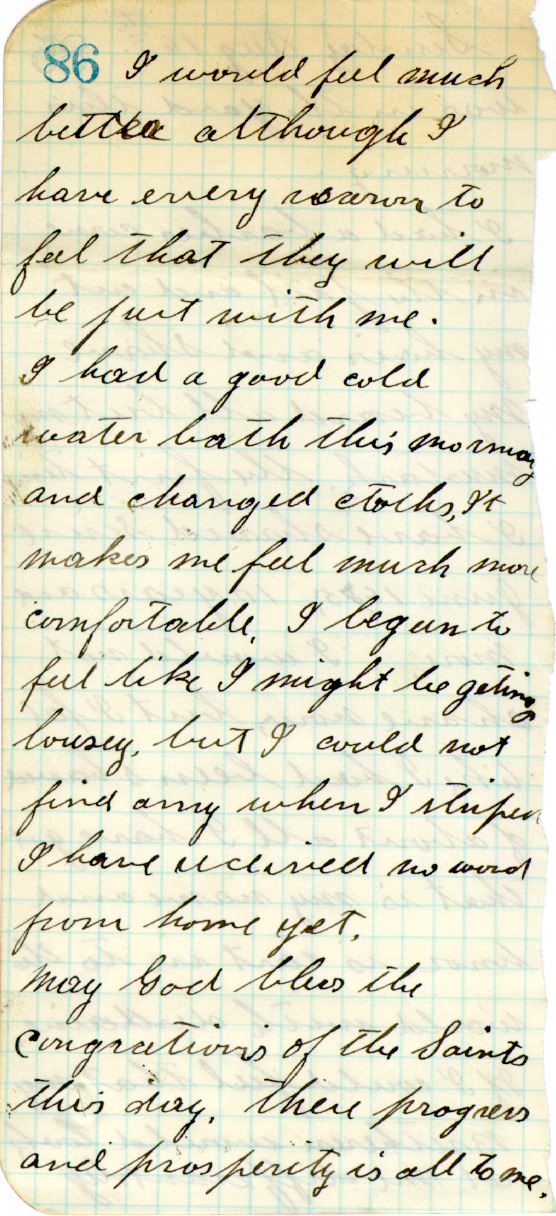 86 I would feel much
better although I
have every reason to
feel that they will
be just with me.
I had a good cold
water bath this morning
and changed cloths, It
makes me feel much more
comfortable. I begun to
feel like I might be geting
lousey, but I could not
find any when I striped
I have recieved no word
from home yet.
may God bless the
congrations of the Saints
this day. there progress
and prosperity is all to me.